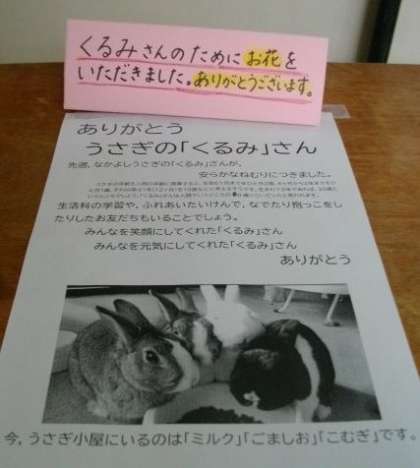 くるみさんのためにお花を
いただきました。ありがとうございます。
ありがとう
うさぎの「くるみ」さん
先週、なかよしうさぎの「くるみ」さんが、
安らかなねむりにつきました。
生活科の学習や、ふれあいたいけんで、なでたり抱っこをし
たりしたお友だちもいることでしょう。
みんなを笑顔にしてくれた「くるみ」さん
みんなを元気にしてくれた「くるみ」さん
ありがとう
今，うさぎ小屋にいるのは「ミルク」「ごましお」「こむぎ」です。